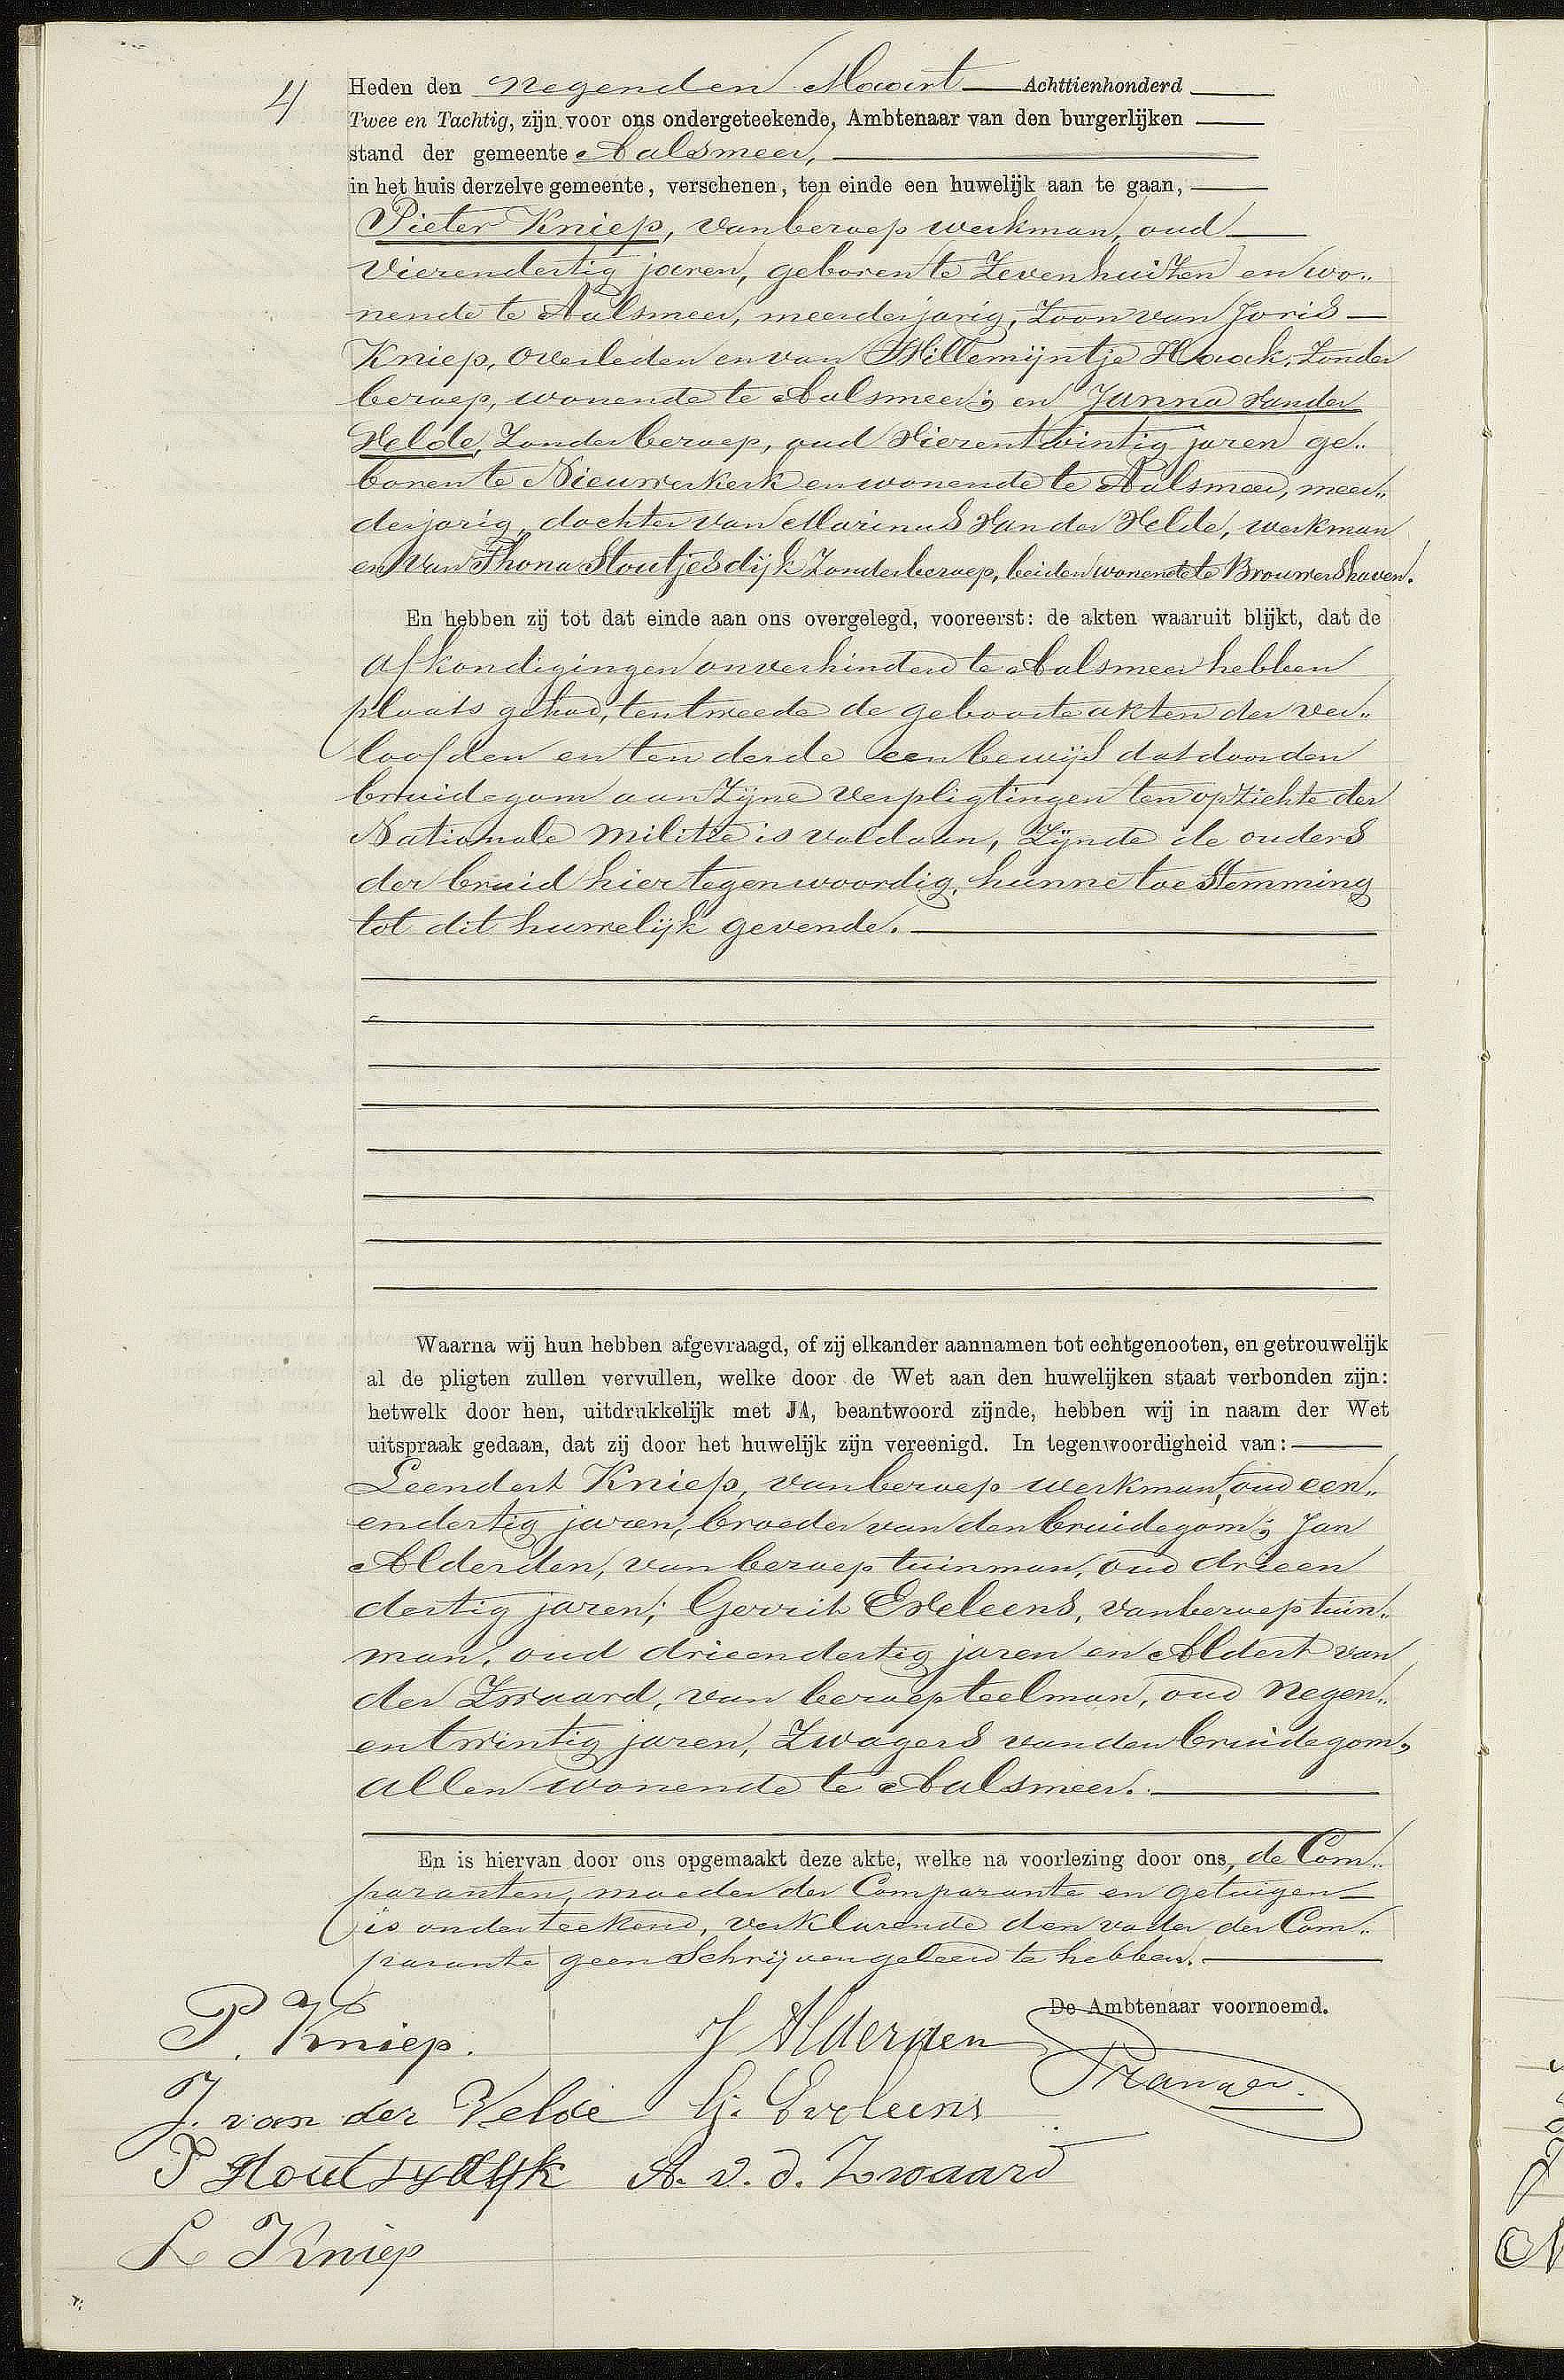 4
Heden den negenden Maart Achttienhonderd
Twee en Tachtig, zijn voor ons ondergeteekende, Ambtenaar van den burgerlijken
stand der gemeente Aalsmeer,
in het huis derzelve gemeente, verschenen, ten einde een huwelijk aan te gaan,
Pieter Kniep, van beroep werkman, oud
vierendertig jaren, geboren te Zevenhuizen en wo„
nende te Aalsmeer, meerderjarig, Zoon van Joris
Kniep, overleden en van Willemijntje Haack, Zonder
beroep, wonende te Aalsmeer; en Janna Vander
Velde, Zonder beroep, oud Vierentwintig jaren ge„
boren te Nieuwerkerk en wonende te Aalsmeer, meer„
derjarig, dochter van Marinus Van der Velde, werkman
en van Phona Stoutjesdijk Zonder beroep, beiden wonende te Brouwershaven.
En hebben zij tot dat einde aan ons overgelegd, vooreerst: de akten waaruit blijkt, dat de
afkondigingen onverhinderd te Aalsmeer hebben
plaats gehad, ten tweede de geboorte akten der ver„
loofden en ten derde een bewijs dat door den
bruidegom aan Zijne verpligtingen ten opzichte der
Nationale Militie is voldaan, Zijnde de ouders
der bruid hier tegenwoordig, hunne toestemming
tot dit huwelijk gevende.
Waarna wij hun hebben afgevraagd, of zij elkander aannamen tot echtgenooten, en getrouwelijk
al de pligten zullen vervullen, welke door de Wet aan den huwelijken staat verbonden zijn:
hetwelk door hen, uitdrukkelijk met JA, beantwoord zijnde, hebben wij in naam der Wet
uitspraak gedaan, dat zij door het huwelijk zijn vereenigd. In tegenwoordigheid van:
Leendert Kniep, van beroep werkman, oud een„
endertig jaren, broeder van den bruidegom; Jan
Alderden, van beroep tuinman, oud drieen
dertig jaren; Gerrit Eveleens, van beroep tuin„
man, oud drieendertig jaren en Aldert van
der Zwaard, van beroep teelman, oud negen„
entwintig jaren, Zwagers van den bruidegom,
allen wonende te Aalsmeer.
En is hiervan door ons opgemaakt deze akte, welke na voorlezing door ons, de Com„
paranten, moeder der Comparante en getuigen
is onderteekend, verklarende den vader der Com„
parante geen Schrijven geleerd te hebben.
De Ambtenaar voornoemd.
P. Kniep. J Alderden
J. van der Velde G. Eveleens
A. v. d. Zwaard
L Kniep